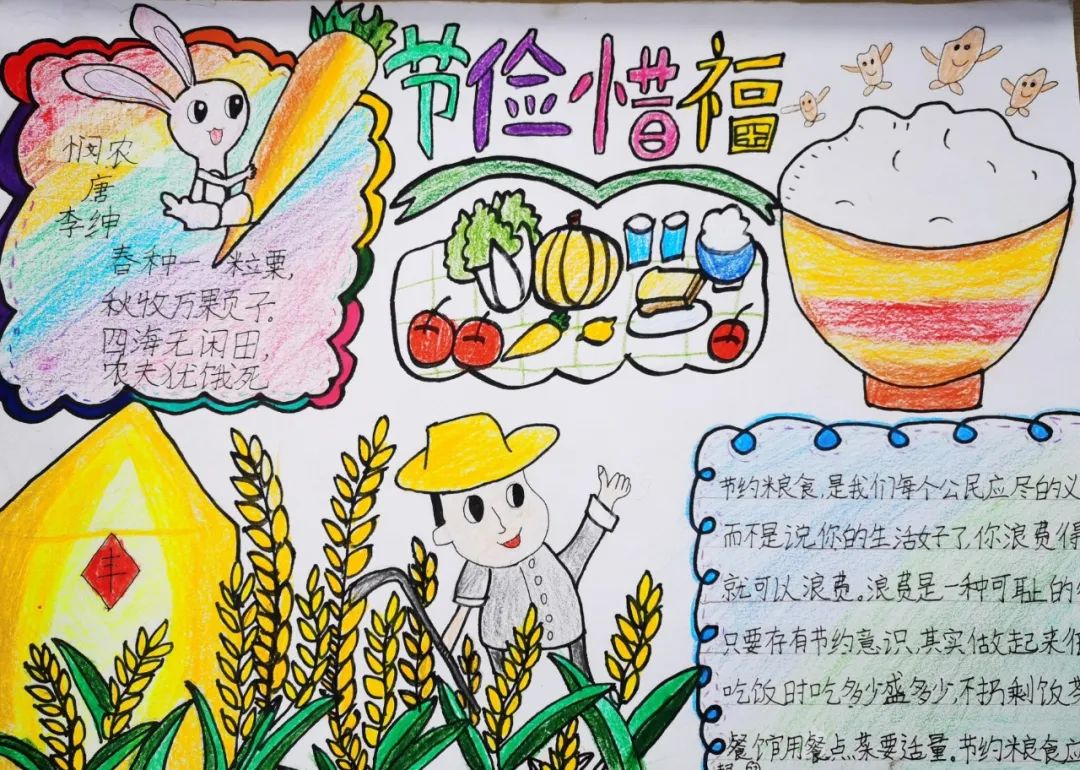 节俭惜福
悯农
唐
李绅
春种一粒粟,
秋收万颗子。
四海无闲田,
农夫犹饿死
丰
节约粮食,是我们每个公民应尽的义
而不是说你的生活好了,你浪费得
就可以浪费。浪费是一种可耻的
只要存有节约意识,其实做起来
吃饭时吃多少盛多少,不扔剩饭
餐馆用餐点菜要适量。节约粮食应